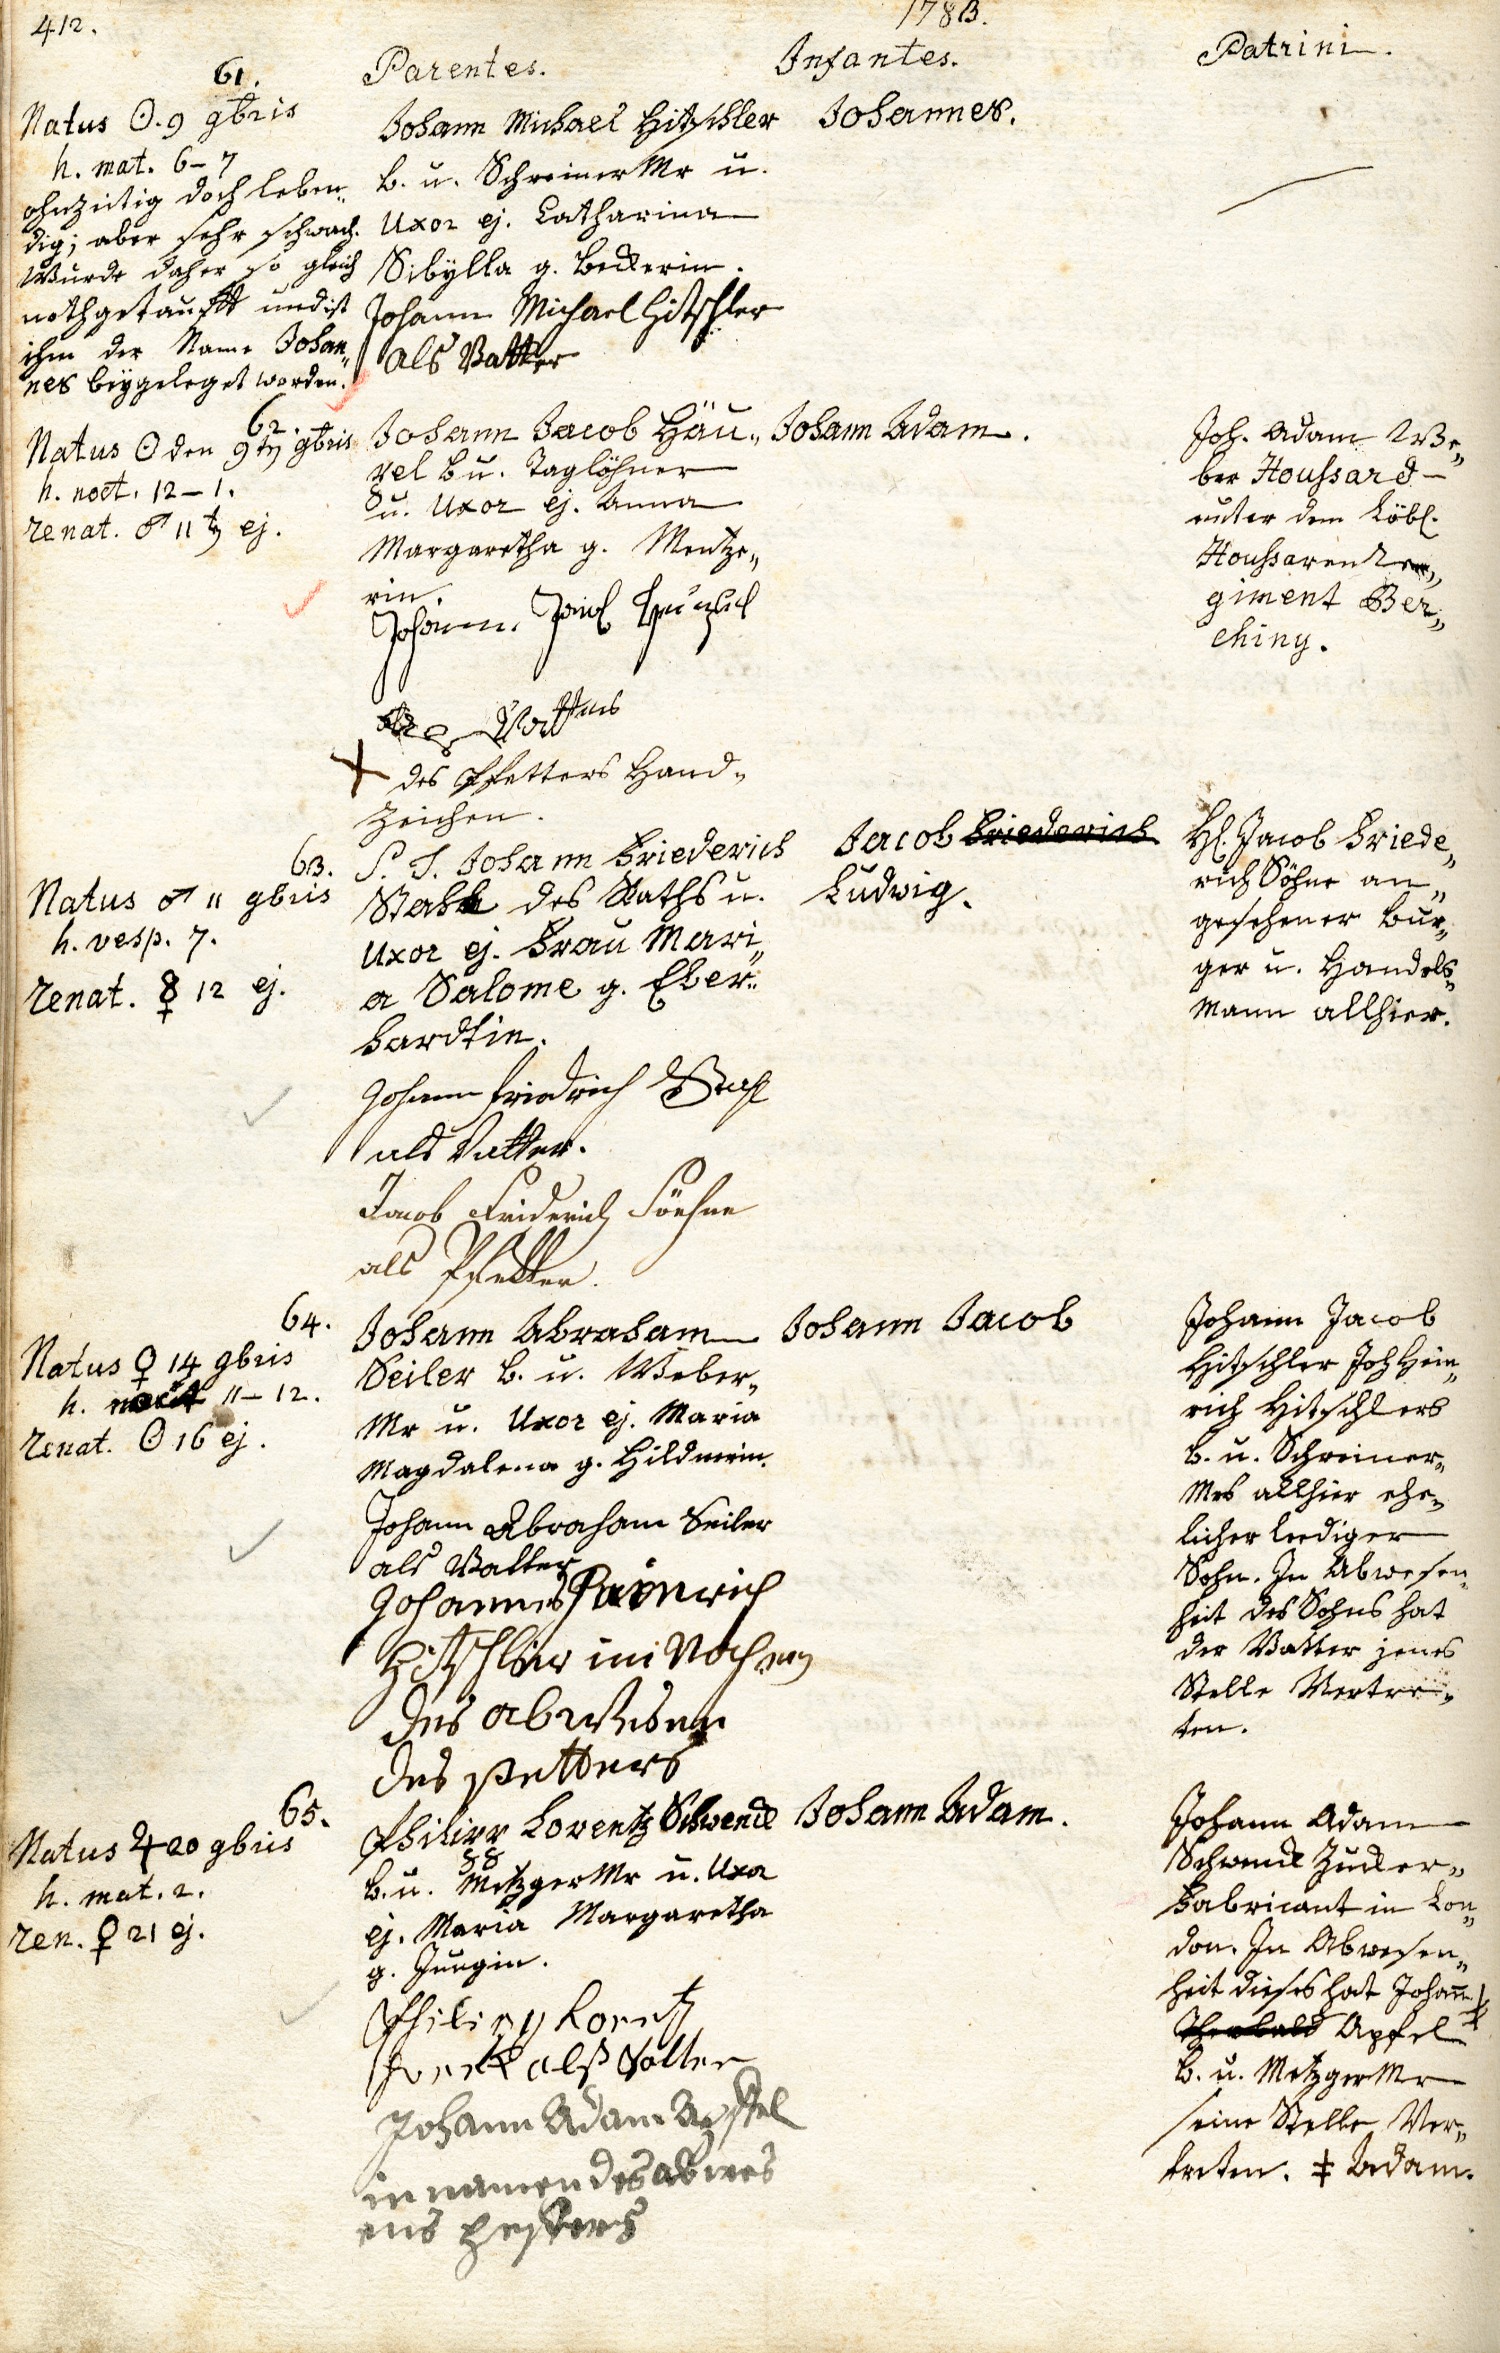 412.
1783.
Parentes.
Infantes.
Patrini.
61.
Natus ☉. 9 9bris
h. mat. 6–7
ohnzeitig doch leben„
dig; aber sehr schwach.
Wurde daher so gleich
nothgetaufft und ist
ihm der Name Johan„
nes beÿgeleget worden.
Johann Michael Hitschler
B. u. Schreiner Mr u.
Uxor ej. Catharina
Sibÿlla g. Beckerin.
Johann Michael Hitschler
als Vatter
Johannes.
62.
Natus ☉ den 9ten 9bris
h. noct. 12–1.
renat. ♂ 11t ej.
Johann Jacob Häu„
xel B u. Taglöhner
u. Uxor ej. Anna
Margaretha g. Mentze„
rin.
Johann Jacob
Vatters
X des Pfetters Hand„
zeichen.
Johann Adam.
Joh. Adam We„
ber Houssard
unter dem Löbl.
Houssaren Re„
giment Ber„
chiny.
63.
Natus ♂ 11 9bris
h. vesp. 7.
renat. ☿ 12 ej.
S. T. Johann Friederich
Stahl des Raths u.
Uxor ej. Frau Mari„
a Salome g. Eber„
hardtin.
Johann Friedrich Stahl
als Vatter.
Jacob Friderich Söehne
als Pfetter.
Jacob Friederich
Ludwig.
H. Jacob Friede„
rich Söhne an„
gesehener Bur„
ger u. Handels„
Mann allhier.
64.
Natus ♀ 14 9bris
h. noct 11–12.
renat. ☉ 16 ej.
Johann Abraham
Seiler B. u. Weber„
Mr u. Uxor ej. Maria
Magdalena g. Hildnerin.
Johann Abraham Seiler
als Vatter
Johannes Hainrich
Hitschler im Nachmen
des abwesen
des petters
Johann Jacob
Johann Jacob
Hitschler Joh Hein„
rich Hitschlers
B. u. Schreiner„
Mrs allhier ehe„
licher lediger
Sohn. In Abwesen„
heit des Sohns hat
der Vatter jenes
Stelle Vertre„
ten.
65.
Natus ♃ 20 9bris
h. mat. 2.
ren. ♀ 21 ej.
Philipp Lorentz Schwenck
B. u. Metzger Mr u. Uxor
ej. Maria Margaretha
g. Jungin.
Philipp Lorentz
als Vatter
Johann Adam Apffel
in namen des abwes
ens petters
Johann Adam.
Johann Adam
Schwenck Zucker„
Fabricant in Lon„
don. In Abwesen„
heit dieses hat Johann ‡
Theobald Apfel
B. u. Metzger Mr
seine Stelle Ver„
tretten. ‡ Adam.